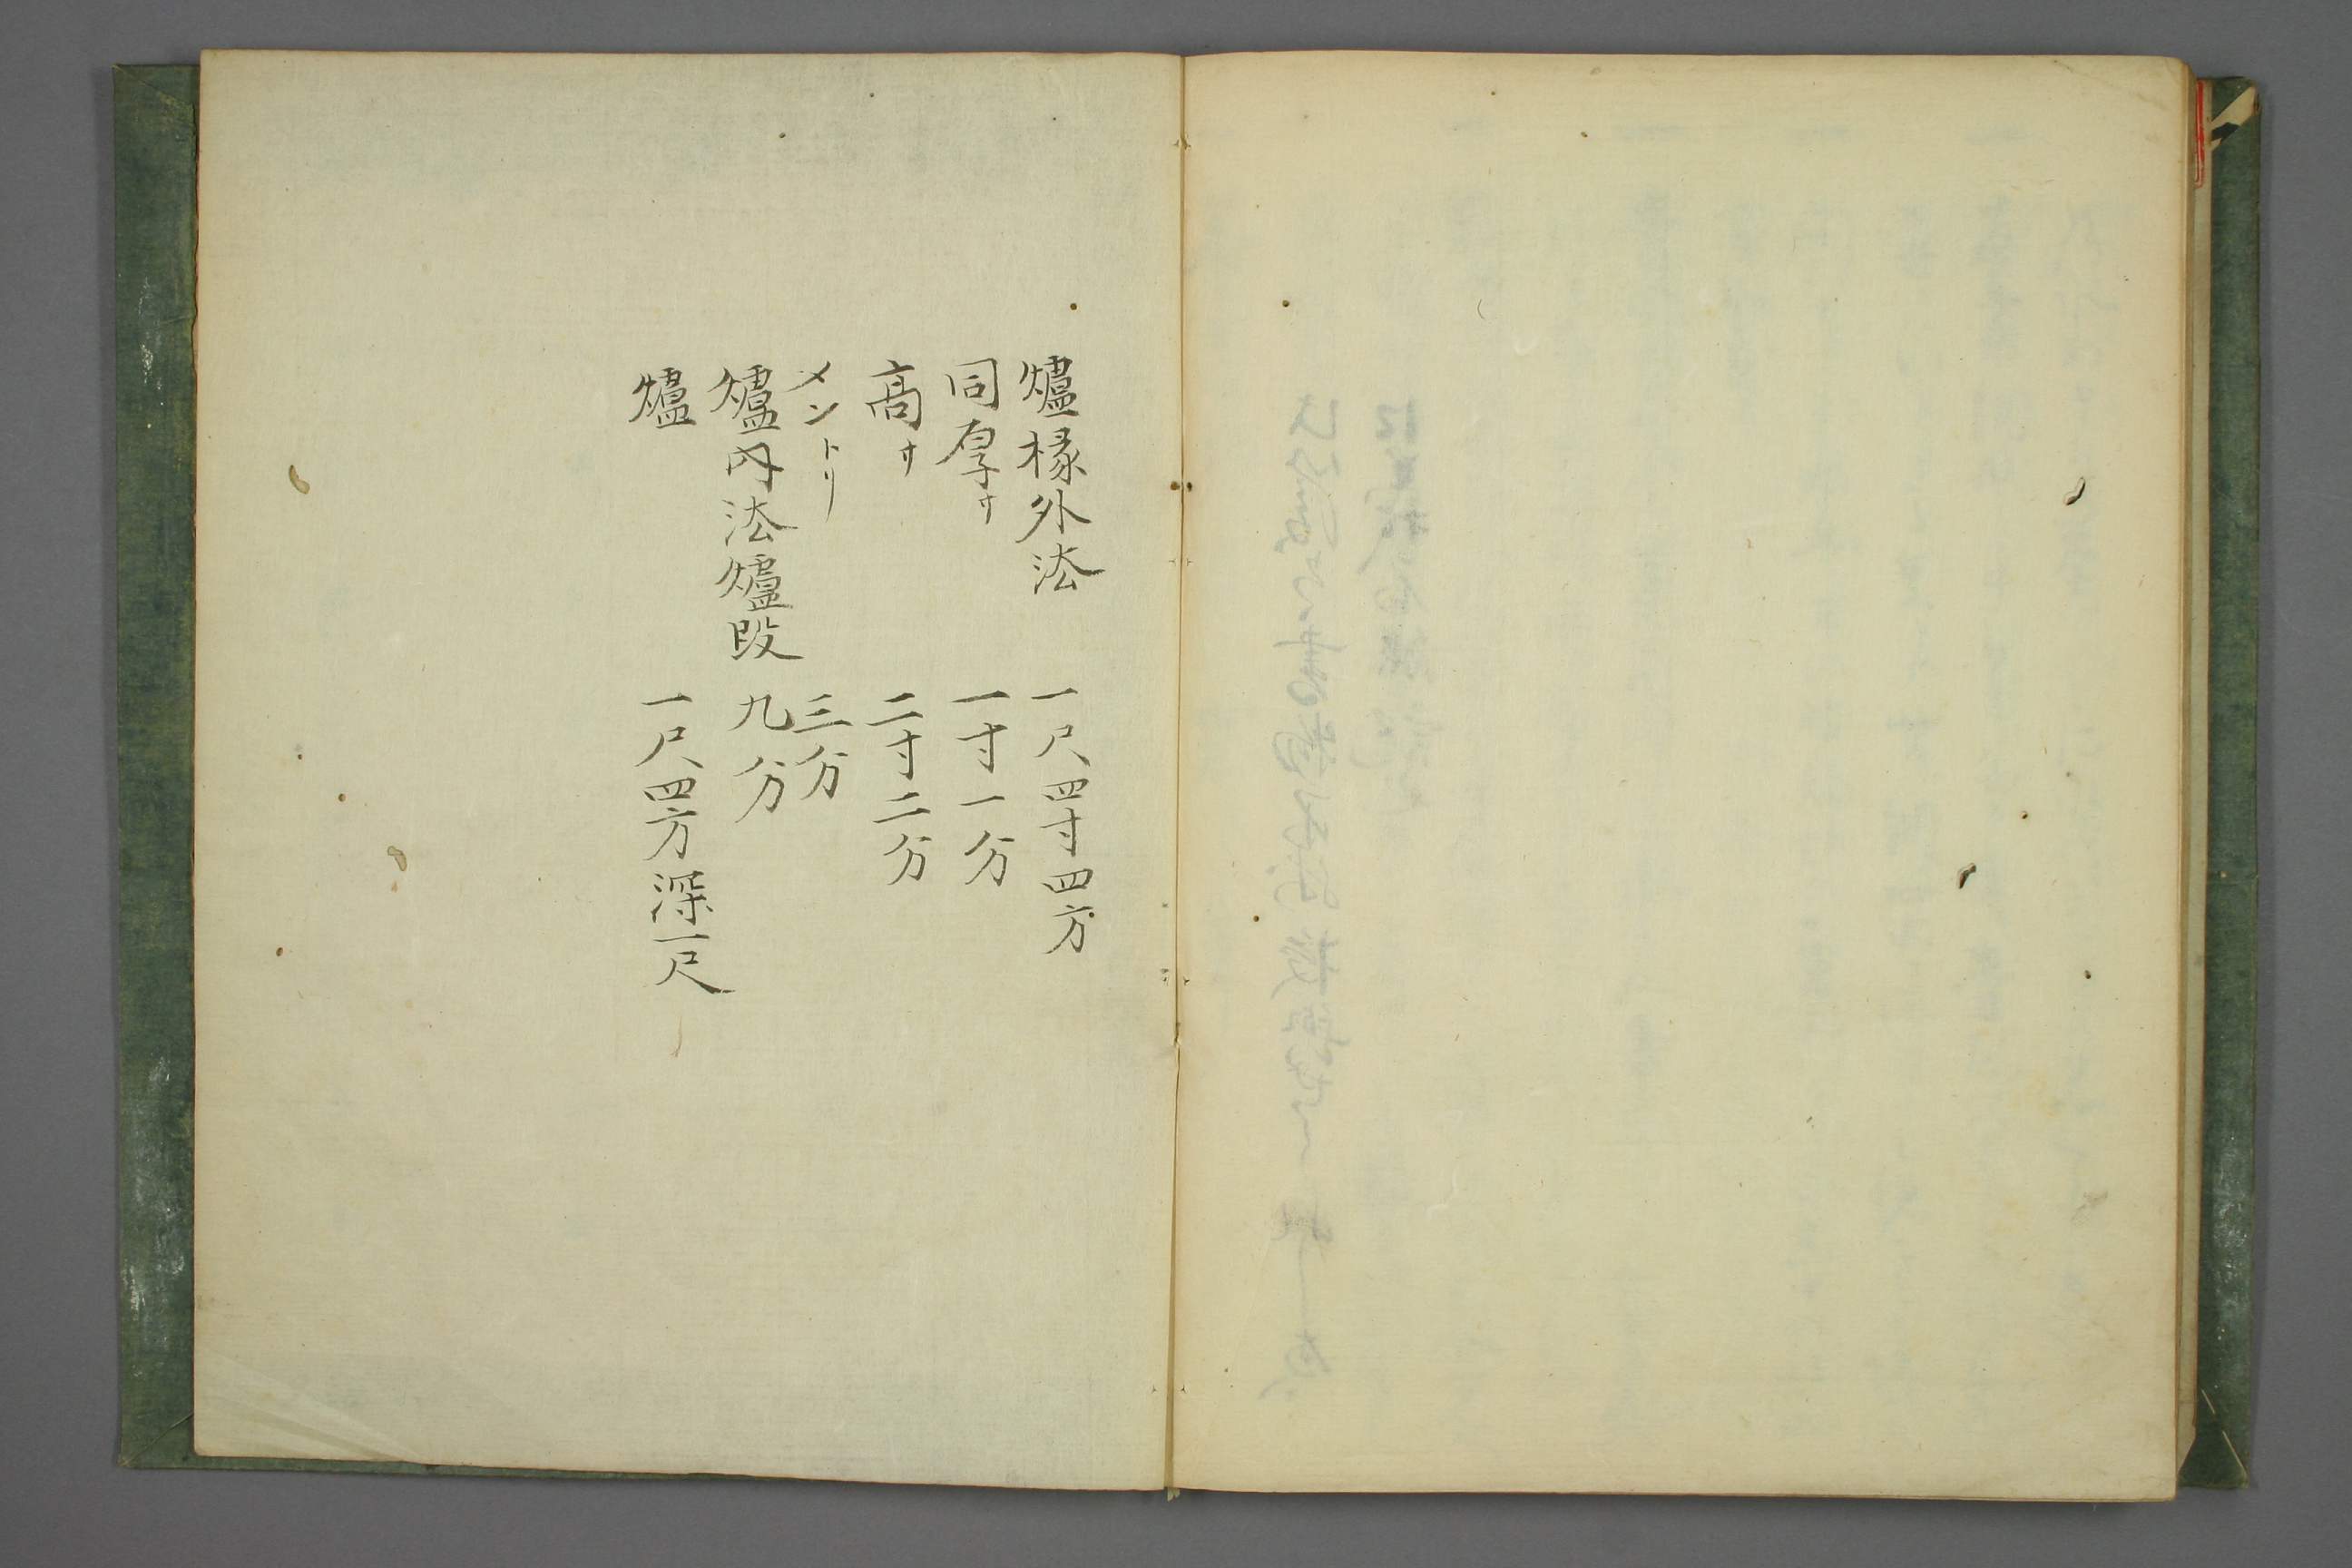 爐椽外法　一尺四寸四方
同厚サ　一寸一分
高サ　二寸二分
メントリ　三分
爐内法爐段　九分
爐　一尺四方深一尺